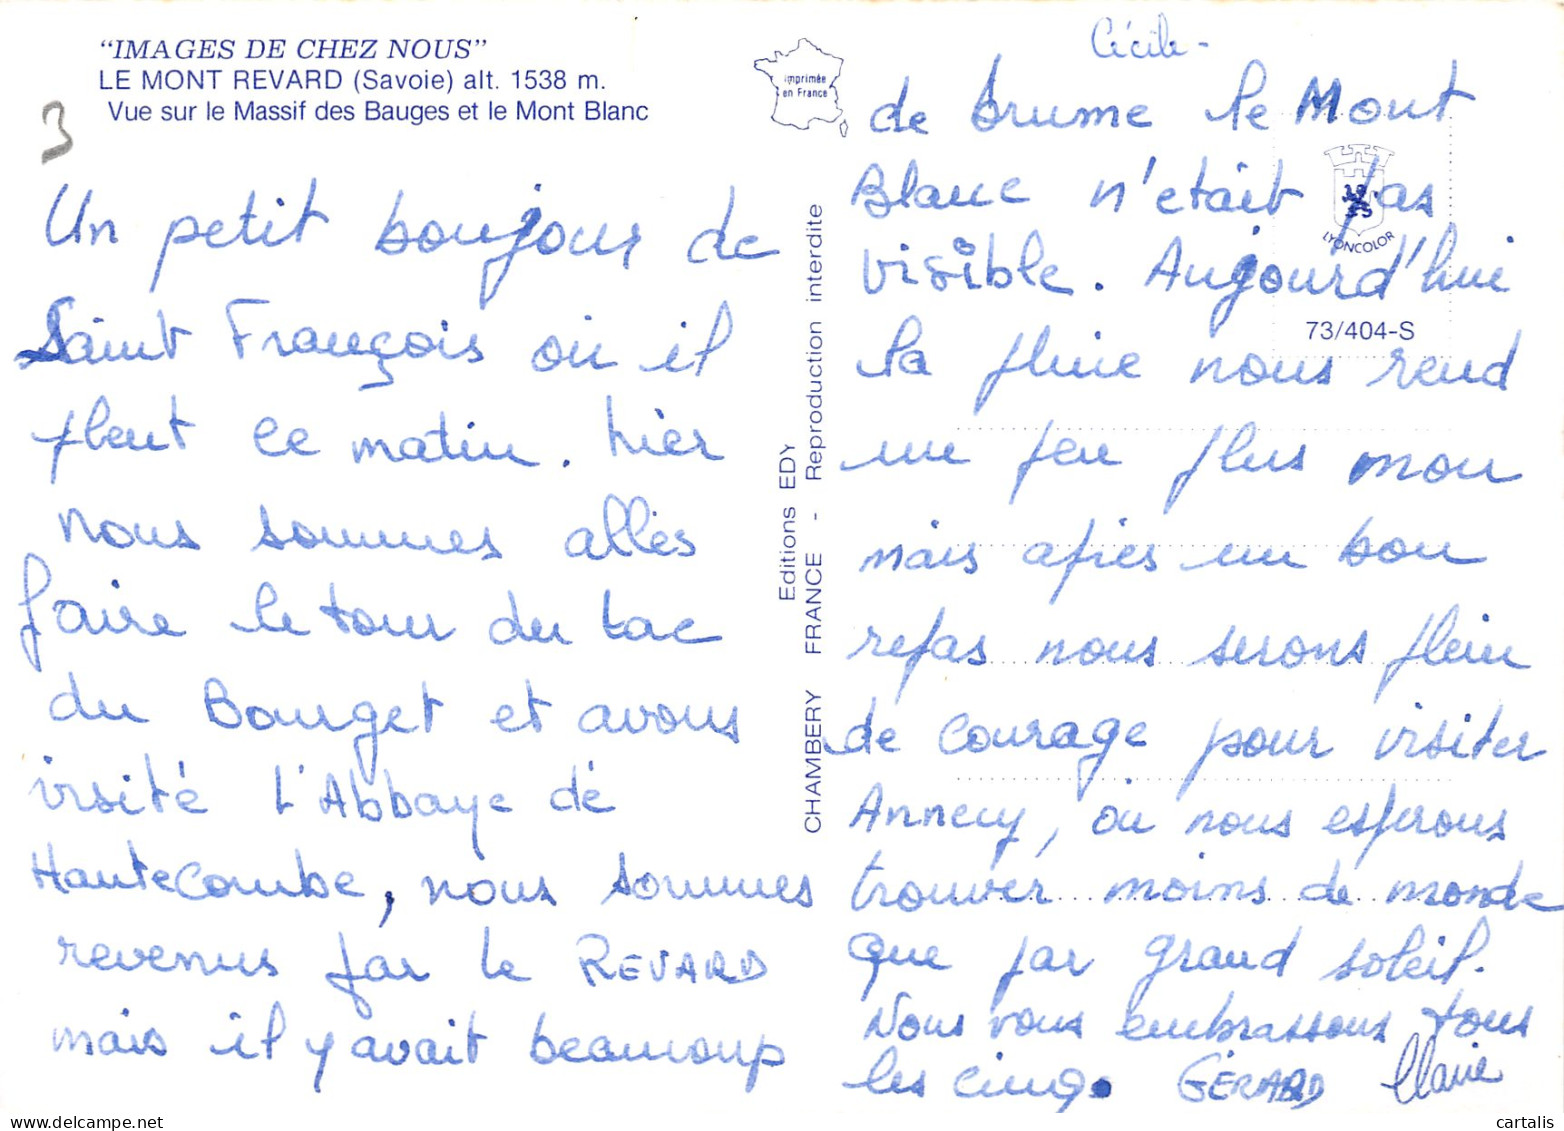 "IMAGES DE CHEZ NOUS"
LE MONT REVARD (Savoie) alt. 1538 m.
Vue sur le Massif des Bauges et le Mont Blanc
3
Un petit boujour de
Saint François où il
pleut ce matin. hier
nous sommes allés
faire le tour du lac
du Bourget et avons
visité l'Abbaye de
Hautecombe, nous sommes
revenus par le REVARD
mais il y avait beaucoup
imprimée
en France
Editions EDY
CHAMBERY FRANCE - Reproduction interdite
Cécile -
de brume le Mont
Blanc n'était pas
visible. Aujourd'hui
la pluie nous rend
un peu plus mou
mais après un bon
repas nous serons plein
de courage pour visiter
Annecy, où nous espérons
trouver moins de monde
que par grand soleil.
Nous vous embrassons tous
les cinq. GÉRARD Claire
LYONCOLOR
73/404-S
cartalis
www.delcampe.net